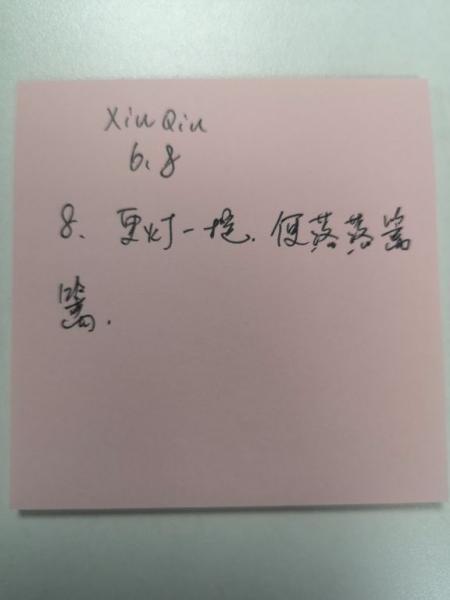 XiuQiu
6.8
8、更灯一挖.便落落